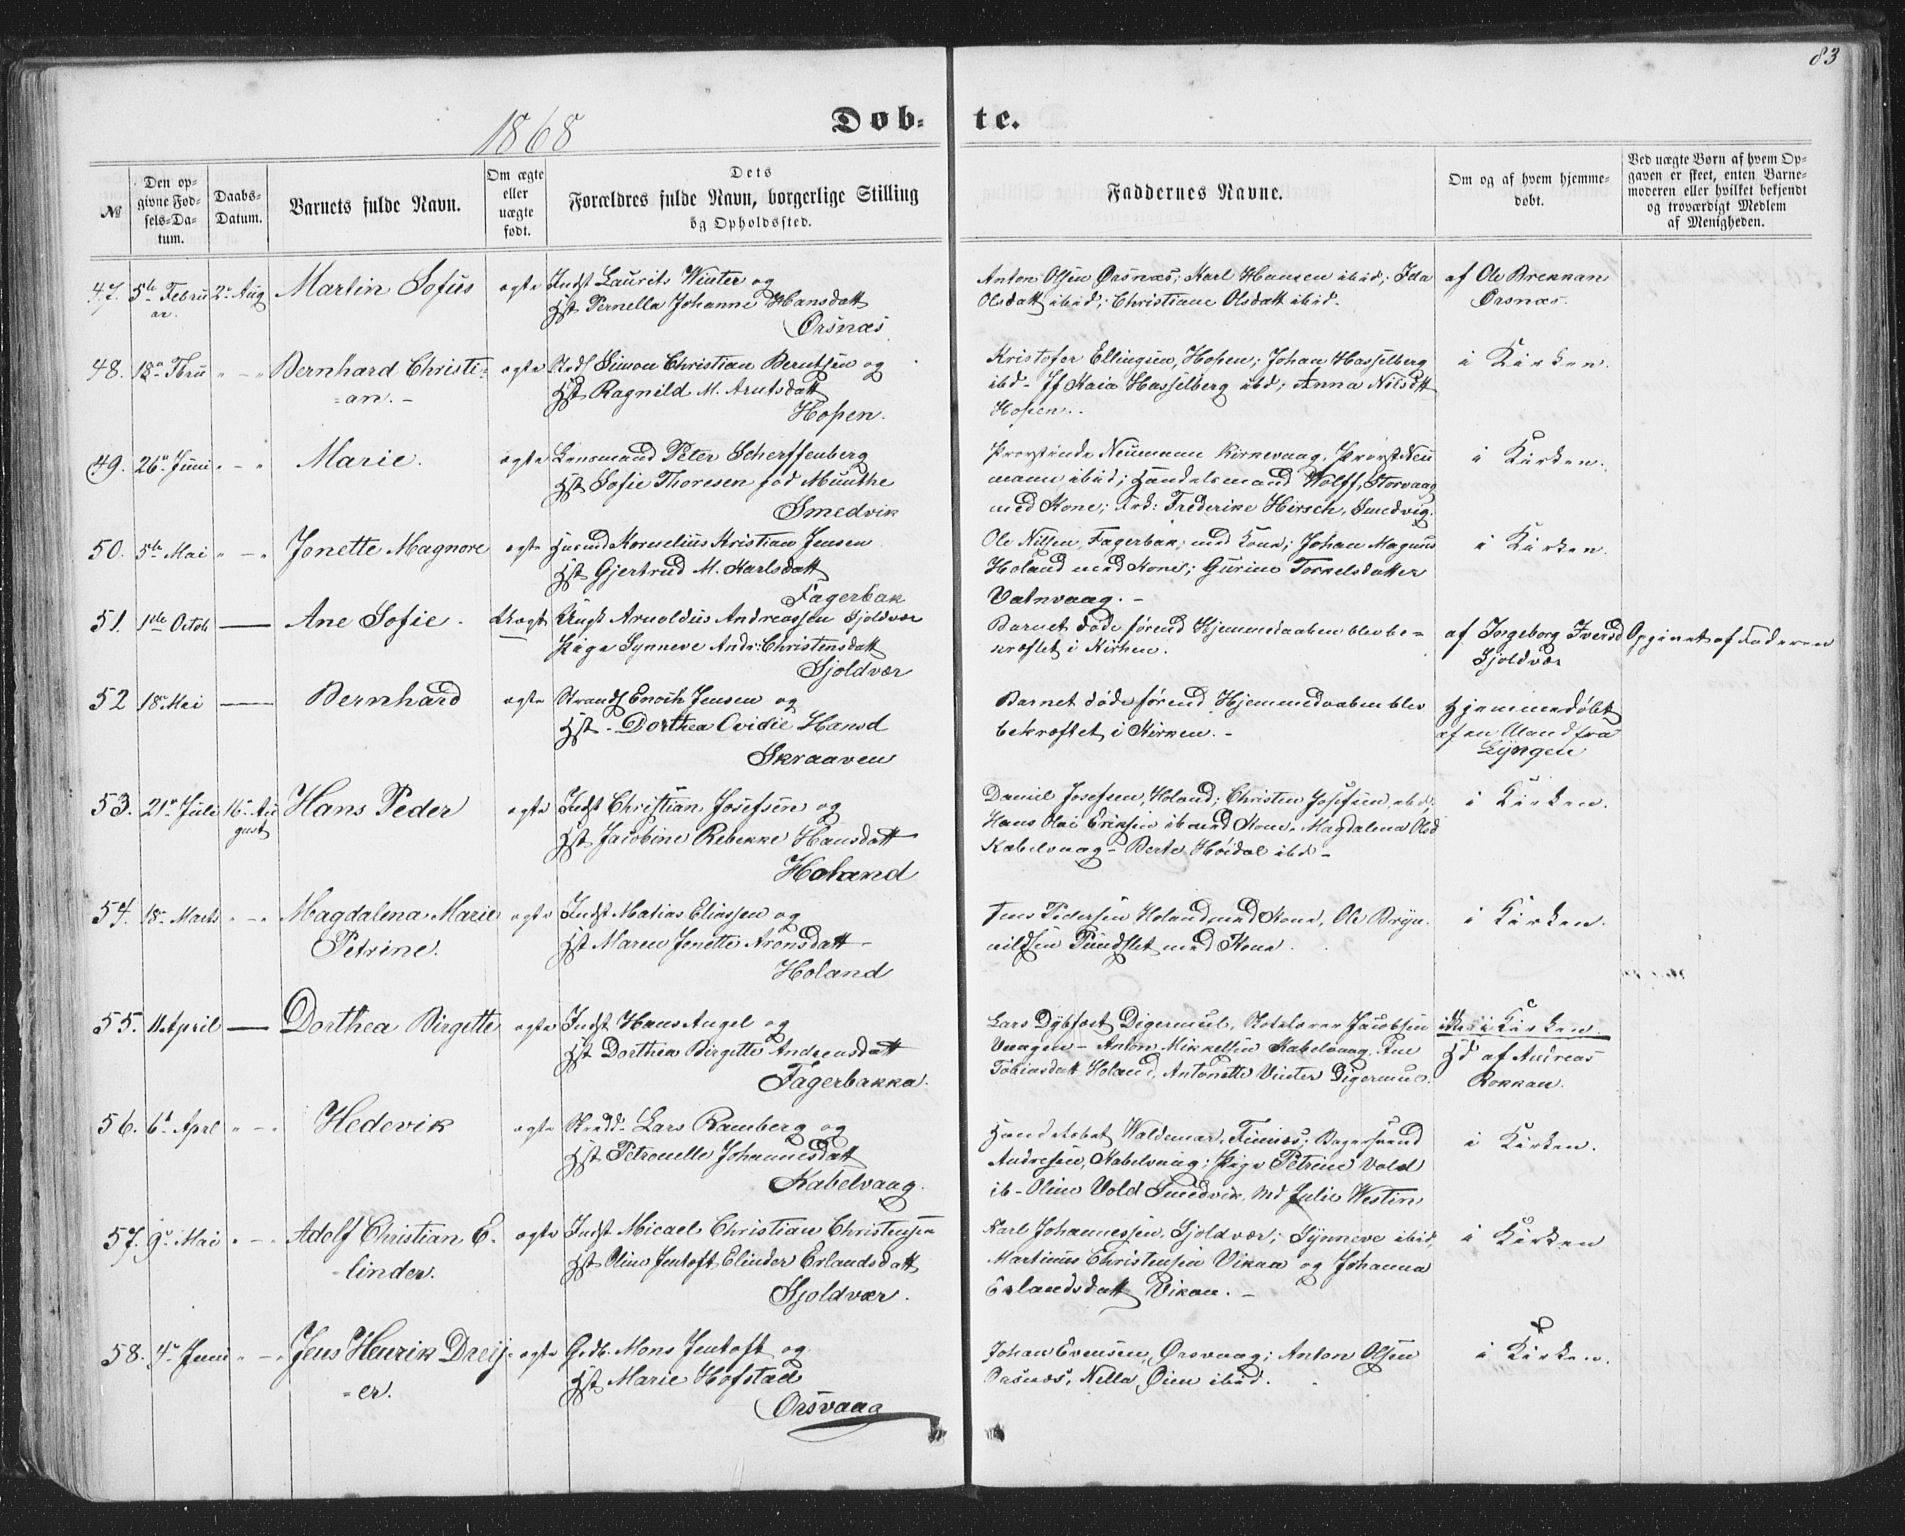 83
1868
Døb- te.
№
Den opgivne Fødsels-Datum.
Daabs-Datum.
Barnets fulde Navn.
Om ægte eller uægte født.
Dets Forældres fulde Navn, borgerlige Stilling og Opholdssted.
Faddernes Navne.
Om og af hvem hjemmedøbt.
Ved uægte Børn af hvem Opgaven er skeet, enten Barnemoderen eller hvilket bekjendt og troværdigt Medlem af Menigheden.
47. 5te Februar. 2. Aug Martin Sofus ægte Indst Laurits Winter og
Hst Pernella Johanne Hansdatt
Ørsnæs
Anton Olsen Ørsnæs; Karl Hansen ibid; Ida
Olsdatt ibid; Christiane Olsdatt ibid.
af Ole Brekkan
Ørsnæs.
48. 18de Fbru " - " Bernhard Christi-
=an. - ægte Simon Christian Berntsen og
Hst Ragnild M. Arntsdatt
Hopen.
Kristofer Ellingsen, Hopen; Johan Hasselberg
ibd - Kaia Hasselberg ibd; Anna Nilsdtt
Hopen.
i Kirken.
49. 26. Juni " - " Marie. ægte Lensmand Peter Scherffenberg
Hst Sofie Thoresen fød Munthe
Smedvik
Provstinde Neumann Kirkevaag, Provst Neu
mann ibid; Handelsmand Wolff, Storvaag
med Kone; Frederike Hirsch, Smedvig.
i Kirken.
50. 5te Mai " - " Jonette Magnore ægte Kornelius Kristian Jensen
Hst Gjertrud M. Karlsdatt
Fagerbak
Ole Nilsen, Fagerbak; med Kone; Johan Magnus
Holand med Kone; Gurine Torkelsdatter
Vatnvaag. -
i Kirken.
51. 1ste Octob — Ane Sofie. Uægt Ungk Arnoldus Andreassen Sjoldvær
Pige Synneve Andr: Christensdatt
Sjoldvær
Barnet døde førend Hjemmedaaben blev be-
kræftet i Kirken.
af Ingeborg Iversd
Sjoldvær
Opgivet af Faderen
52 18. Mai — Bernhard ægte Strands Enoch Jensen og
Hst - Dorthea Ovidie Hansd
Skraaven
Barnet døde førend Hjemmedaaben blev
bekræftet i Kirken. -
Hjemmedøbt
af en Mand fra
Lyngen
53. 21. Juli 16. Au
gust Hans Peder ægte Indst Christian Josefsen og
Hst Jacobine Rebekke Hansdatt
Holand
Daniel Josefsen, Holand; Christen Josefsen, ibd;
Hans Olai Eriksen ib med Kone. Magdalena Olsd
Kabelvaag - Berte Høidal ibd -
i Kirken.
54. 18. Marts " - " Magdalena Marie
Petrine. ægte Indst Matias Eliassen og
Hst Maren Jonette Aronsdatt -
Holand
Jens Pedersen Holand med Kone, Ole Bryn-
nildsen Pundslet med Kone.
i Kirken.
55. 11. April — Dorthea Birgette ægte Indst Hans Angel og
Hst Dorthea Birgitte Andreasdatt
Fagerbakka.
Lars Dybfest Digermul, Jacobsen
Vaagen - Anton Mikkelsen Kabelvaag, Ane
Tobiasdatt Holand, Antonette Vinter Digermul.
ikke i Kirken.
Hd af Andreas
Rokkan.
56. 6. Aprl " - " Hedevik ægte Skredd - Lars Ramberg og
Hst Petronelle Johannesdatt
Kabelvaag.
Waldemar, Finnæs; Bagersvend
Andresen, Kabelvaag; Pige Petrine Vold
ib - Oline Vold Smedvik, Md Julie Westin
i Kirken.
57. 9. Mai " - " Adolf Christian E-
-linder. ægte Indst Micael Christian Christensen
Hst Oline Jentoft Elinder Erlandsdatt
Sjoldvær.
Karl Johannessen, Sjoldvær; Synneve ibid,
Martinus Christensen Vikan og Johanna
Erlandsdatt Vikan. -
i Kirken
58. 4. Juni " - " Jens Henrik Dreij-
=er. ægte Gdb. Mons Jentoft og
Hst Marie Hofstad
Orsvaag
Johan Evensen, Ørsvaag; Anton Olsen
Orsnæs, Nella Øien ibid.
i Kirken.